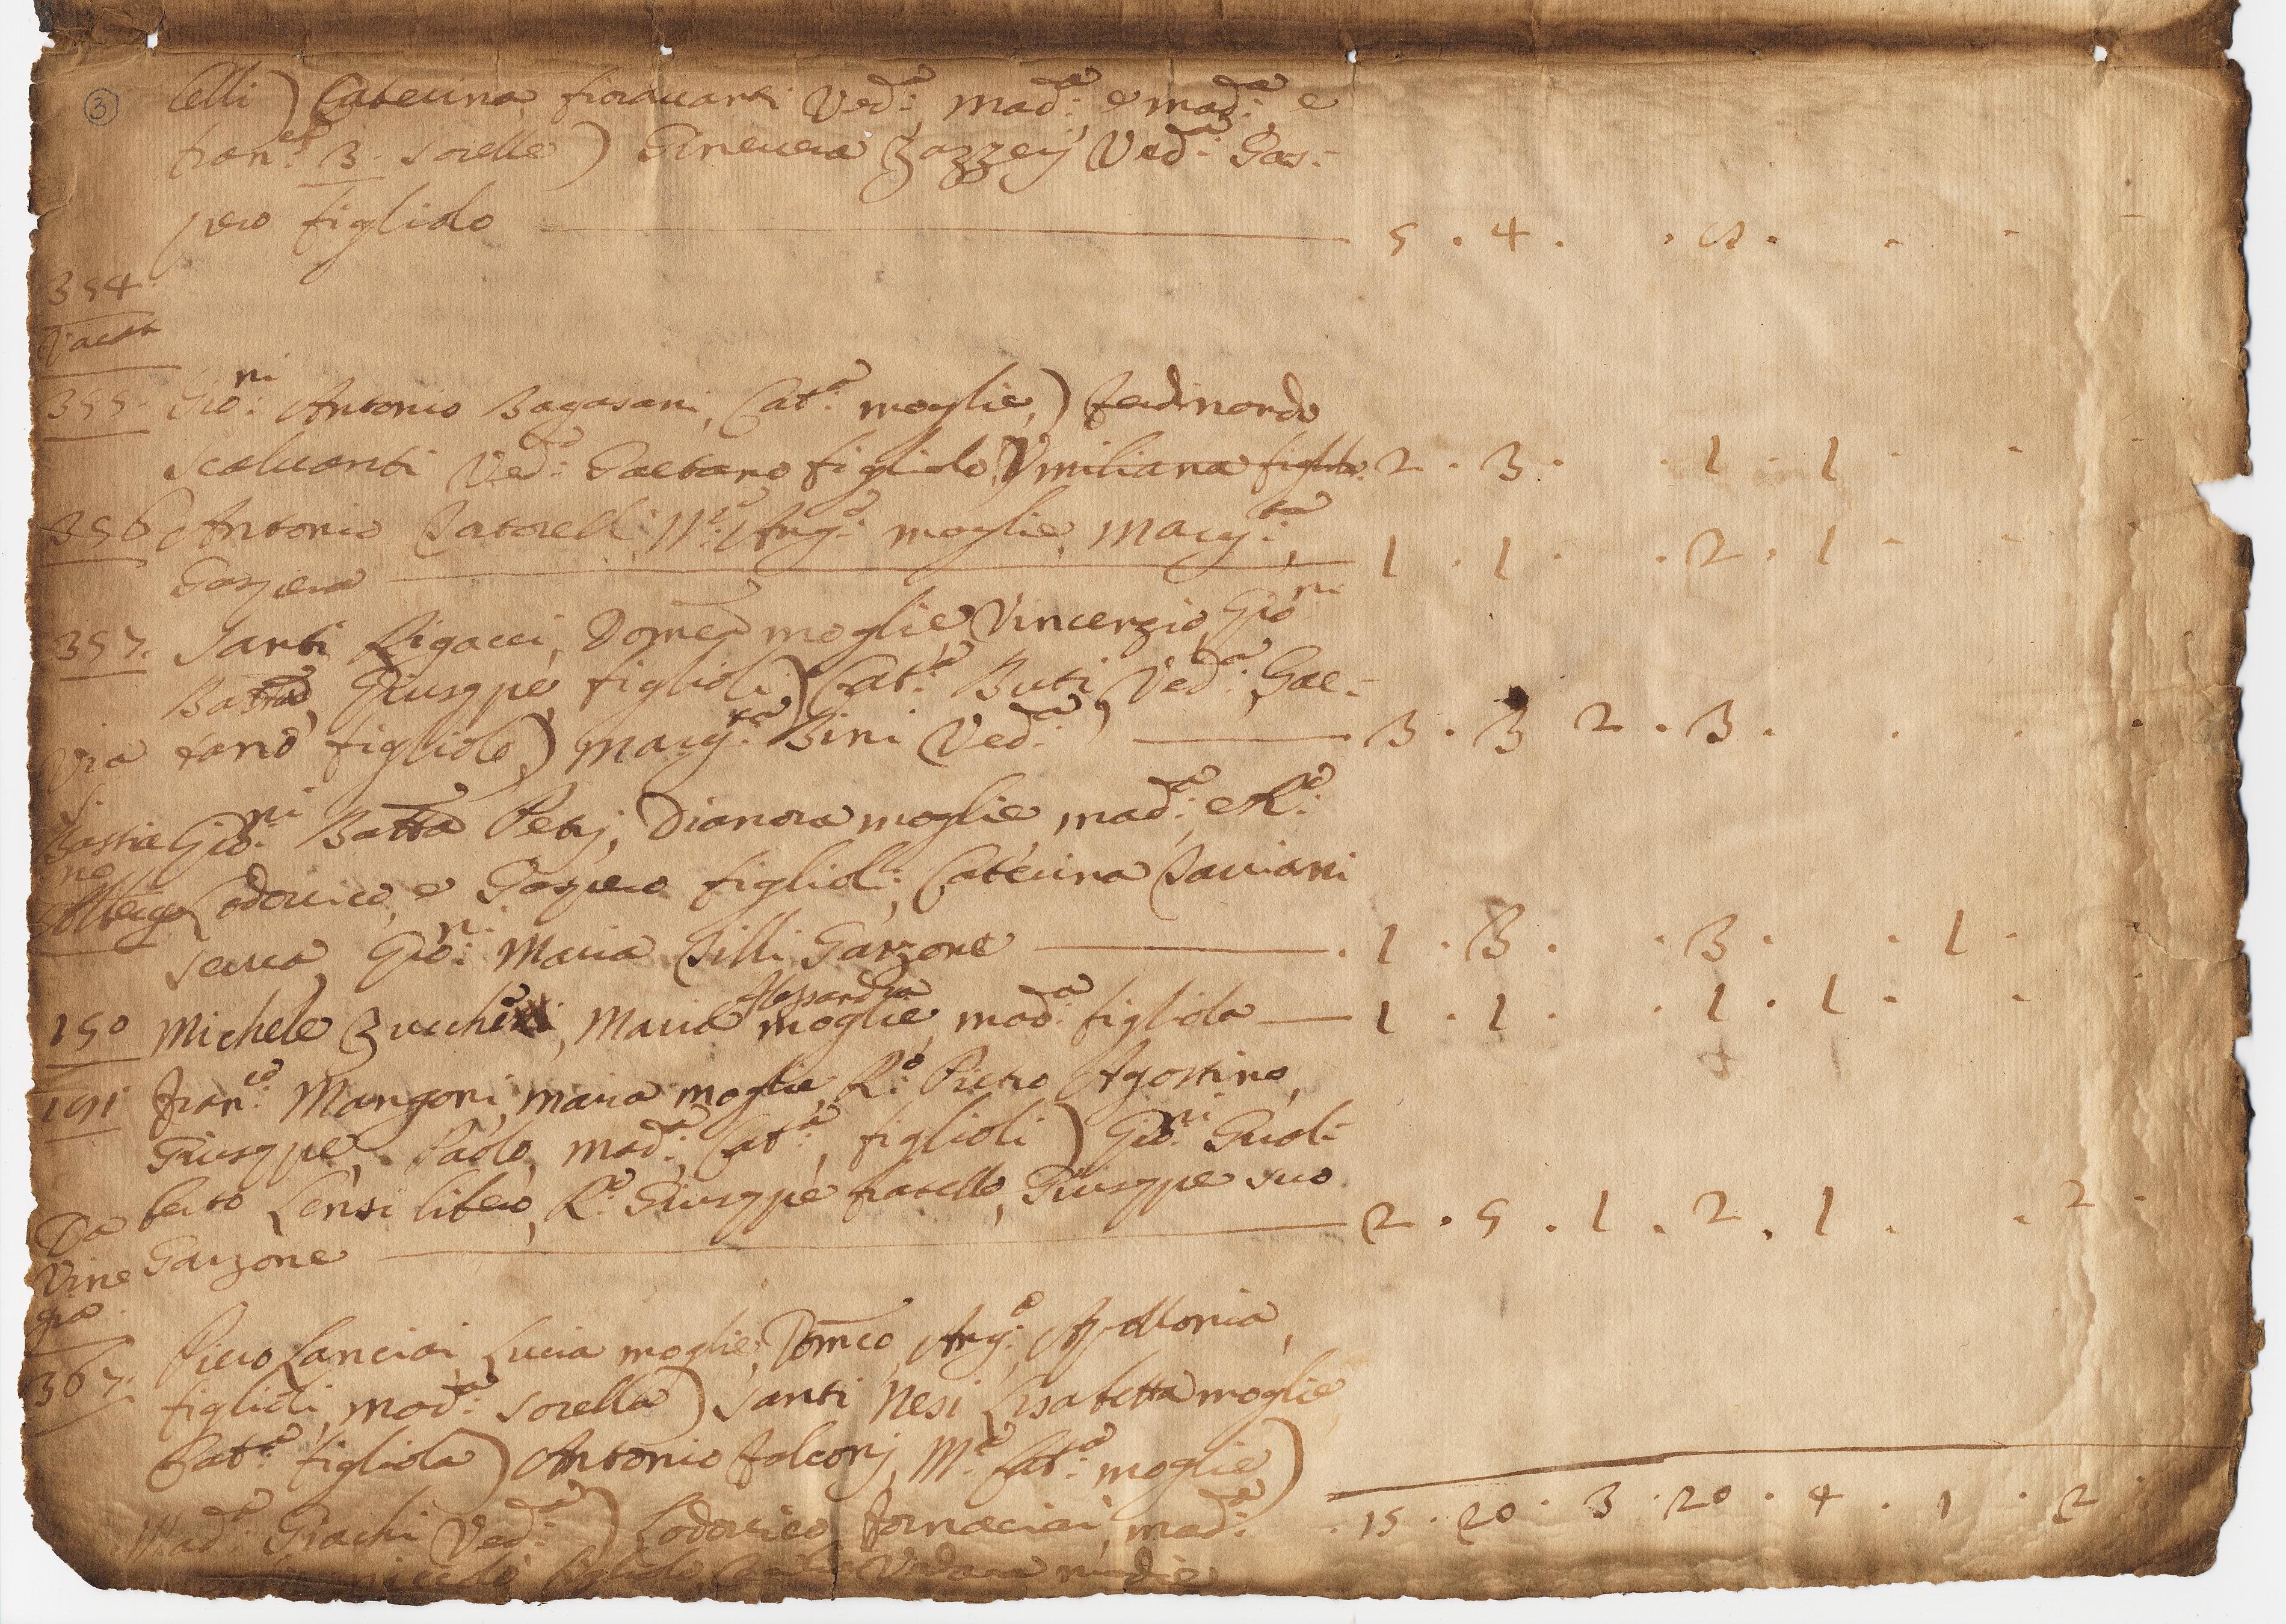 3
celli) Caterina fiorauanti Ved:a mad:a e mad:a e
fran:ca 3. sorelle) Gineuera Zazzerj Ved:a Gas:-
pero figliolo 5 . 4 . . 8 . . .
354
Vacua
355. Gio:ni Antonio Bagasani, Cat:a moglie,) ferdinando
scaluanti Ved:o Gaetano figliolo, Vmiliana figlila 2 . 3 . . 1 . 1 . .
356 Antonio Satorelli M:a Ang:a moglie, Marg:ta,
Gaspera 1 . 1 . . 2 . 1 . .
357. Santi Rigacci, Dome:ca moglie, Vincenzio, Gio:ni
Batta, Giuseppe, figlioli) Cat:a Buti, Ved:a, Gae:-
Via tano figliolo,) Marg:ta Bini Ved:a, 3 . 3 2 . 3 . . . .
di
Bastia Gio:ni Batta Petrj, Dianora moglie, mad:a, e R:o
no
Albergo Lodouico, e Gaspero figlioli, Caterina Dauiani
serua, Gio:ni Maria Silli Garzone . 1 . 3 . . 3 . . 1 .
Alessandra
150 Michele Zuccheri, Maria moglie, mad:a figliola 1 . 1 . . 1 . 1 . .
191 Fran:co Mangoni, maria moglie, R:o Pietro Agostino,
Giuseppe, Paolo, mad:a, Cat:a, figlioli) Gio:ni Gual-
berto Lensi libero, R:o Giuseppe fratello, Giuseppe suo
Da
Garzone 2 . 5 . 1 . 2 . 1 . . 2 .
Vine
gia
367. Piero Lanciai, Lucia moglie, Domco, Ang:a, Apollonia,
figlioli, mad:a sorella) Santi Nesi Lisabetta moglie
Cat:a figliola) Antonio Falconj, M:a Cat:a moglie)
Mad:a Giachi Ved:a) Lodouico fornaciai, mad:a
. 15 . 20 . 3 . 20 . 4 . 1 . 2
niccolo figliolo